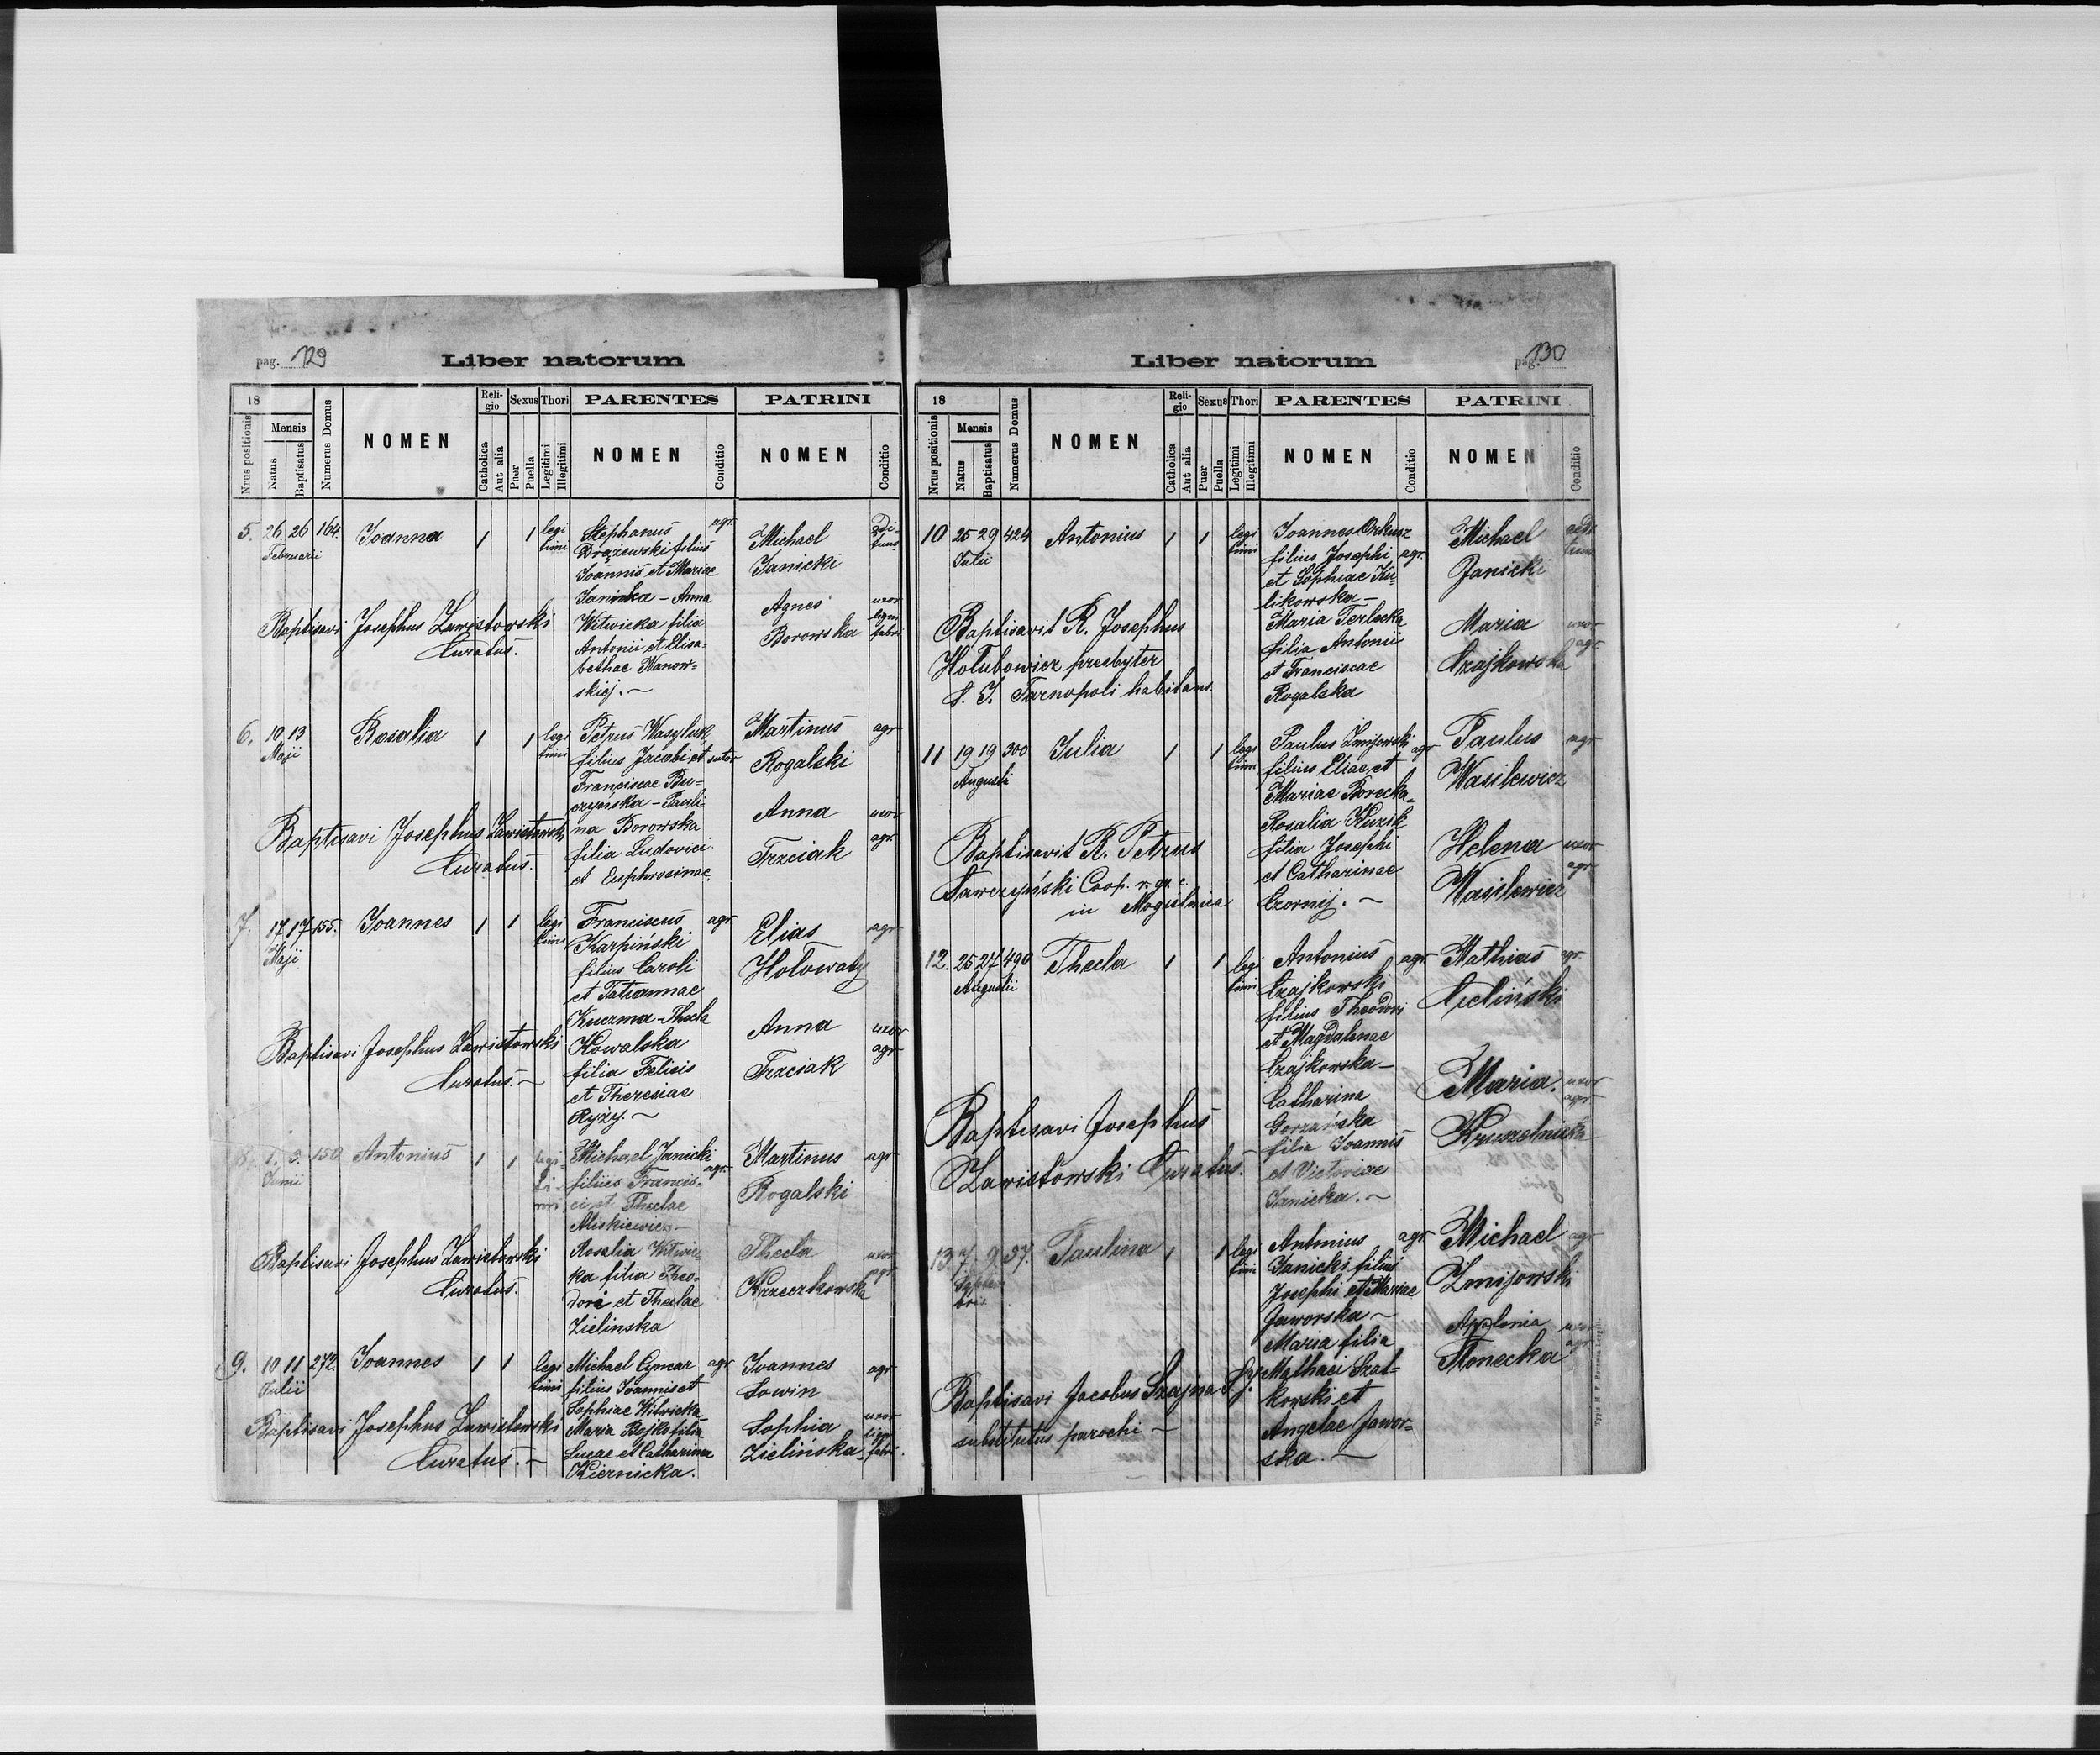 pag. 129
Liber natorum
18
Mensis
Nrus positionis
Natus
Baptisatus
Numerus Domus
NOMEN
Religio
Catholica
Aut alia
Sexus
Puer
Puella
Thori
Legitimi
Illegitimi
PARENTES
NOMEN
Conditio
PATRINI
NOMEN
Conditio
5. 26. 26 164. Joanna 1 1 legi
timi
Februarii
Stephanus agr.
Drązewski filius
Joannis et Mariae
Janicka - Anna
Witwicka filia
Antonii et Elisa-
bethae Wanow-
skiej. ~
Michael
Janicki
Agnes uxor
Borowska fabri
Baptisavi Josephus Lawistowski
Curatus.
6. 10 13 Rosalia 1 1 legi
timi
Maji
Petrus Wasyluk
filius Jacobi et sutor
Franciscae Bu-
czyńska - Pauli-
na Borowska
filia Ludovici
et Euphrosinae.
Martinus agr
Rogalski
Anna uxor
Trzciak agr.
Baptisavi Josephus Lawistowski
Curatus.
7. 17 17 155. Joannes 1 1 legi
timi
Maji
Franciscus agr
Karpiński
filius Caroli
et Tatiannae
Kuczma - Thecla
Kowalska
filia Felicis
et Theresiae
Ryży. ~
Elias agr
Hołowaty
Anna uxor
Trzciak agr
Baptisavi Josephus Lawistowski
Curatus. ~
8. 1. 3. 150 Antonius 1 1 legi-
ti-
mi.
Junii
Michael Janicki
filius Francis- agr.
ci et Theclae
Miskiewicz -
Rosalia Witwic
ka filia Theo-
dori et Theclae
Zielinska
Martinus agr
Rogalski
Thecla uxor
Krzeczkowska agr.
Baptisavi Josephus Lawistowski
Curatus.
9. 10 11 272. Joannes 1 1 legi
timi
Julii
Michael Cymcar agr
filius Joannis et
Sophiae Witwicka
Maria Bojko filia
Lucae et Catharina
Kiernicka.
Joannes agr
Sowin
Sophia uxor
Zielińska fabri.
Baptisavi Josephus Lawistowski
Curatus. ~
pag. 130
Liber natorum
18
Mensis
Nrus positionis
Natus
Baptisatus
Numerus Domus
NOMEN
Religio
Catholica
Aut alia
Sexus
Puer
Puella
Thori
Legitimi
Illegitimi
PARENTES
NOMEN
Conditio
PATRINI
NOMEN
Conditio
10 25 29 424 Antonius 1 1 legi
timi
Julii
Joannes Orkusz
filius Josephi agr.
et Sophiae Ku-
likowska -
Maria Terlecka
filia Antonii
et Franciscae
Rogalska
Michael
Janicki
Maria uxor
Czajkowska agr
Baptisavit R. Josephus
Hołubowicz presbyter
S. J. Tarnopoli habitans.
11 19 19 300 Julia 1 1 legi
timi
Augusti
Paulus Zmijowski
filius Eliae et agr
Mariae Borecka -
Rosalia Kuzik
filia Josephi
et Catharinae
Czornij. ~
Paulus agr
Wasilewicz
Helena uxor
Wasilewicz agr
Baptisavit R. Petrus
Ławczyński Coop. r. gr. c.
in Mogielnica
12. 25 27 490 Thecla 1 1 legi
timi
Augusti
Antonius agr
Czajkowski
filius Theodori
et Magdalenae
Czajkowska -
Catharina
Gorzańska
filia Joannis
et Victoriae
Janicka. ~
Mathias agr.
Cieliński
Maria uxor
Kruszelnicka agr
Baptisavi Josephus
Lawistowski Curatus.
13. 7. 9. 37. Paulina 1 1 legi
timi
Septem
bris
Antonius agr
Janicki filius
Josephi et Mariae
Jaworska ~
Maria filia
Mathaei Szat-
kowski et
Angelae Jawor-
ska. ~
Michael agr
Zmijowski
Apolonia uxor
Słonecka agr
Baptisavi Jacobus Szajna S.J.
substitutus parochi ~